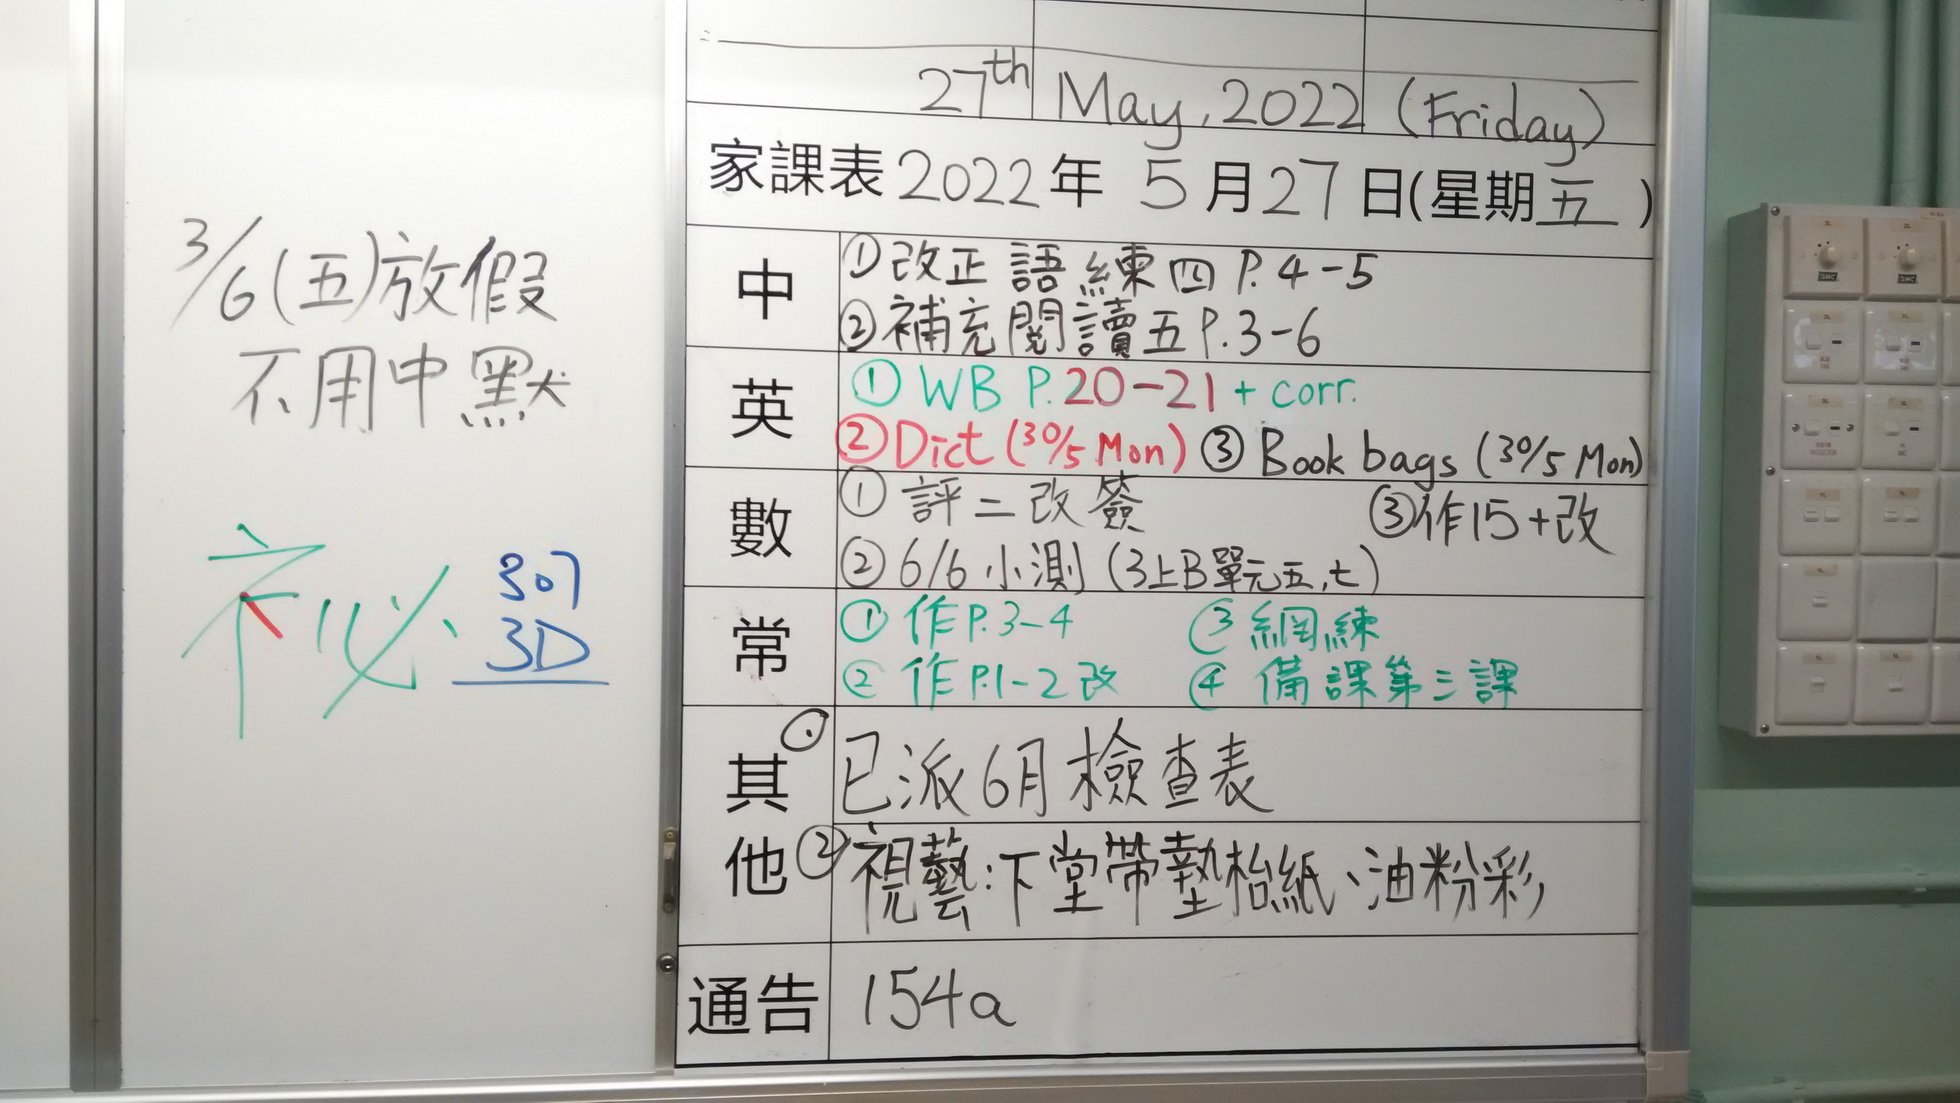 3/6(五)放假
不用中默
祕
307
3D
27th May, 2022 (Friday)
家課表 2022年 5月27日(星期五)
中
①改正語練四 P.4-5
②補充閱讀五 P.3-6
英
① WB P.20-21 + corr.
②Dict (30/5 Mon) ③ Book bags (30/5 Mon)
數
① 評二改簽 ③作15+改
② 6/6 小測 (3上B單元五,七)
常
① 作P.3-4 ③ 網練
② 作P.1-2改 ④ 備課第三課
其他
① 已派6月檢查表
② 視藝:下堂帶墊枱紙、油粉彩
通告
154a